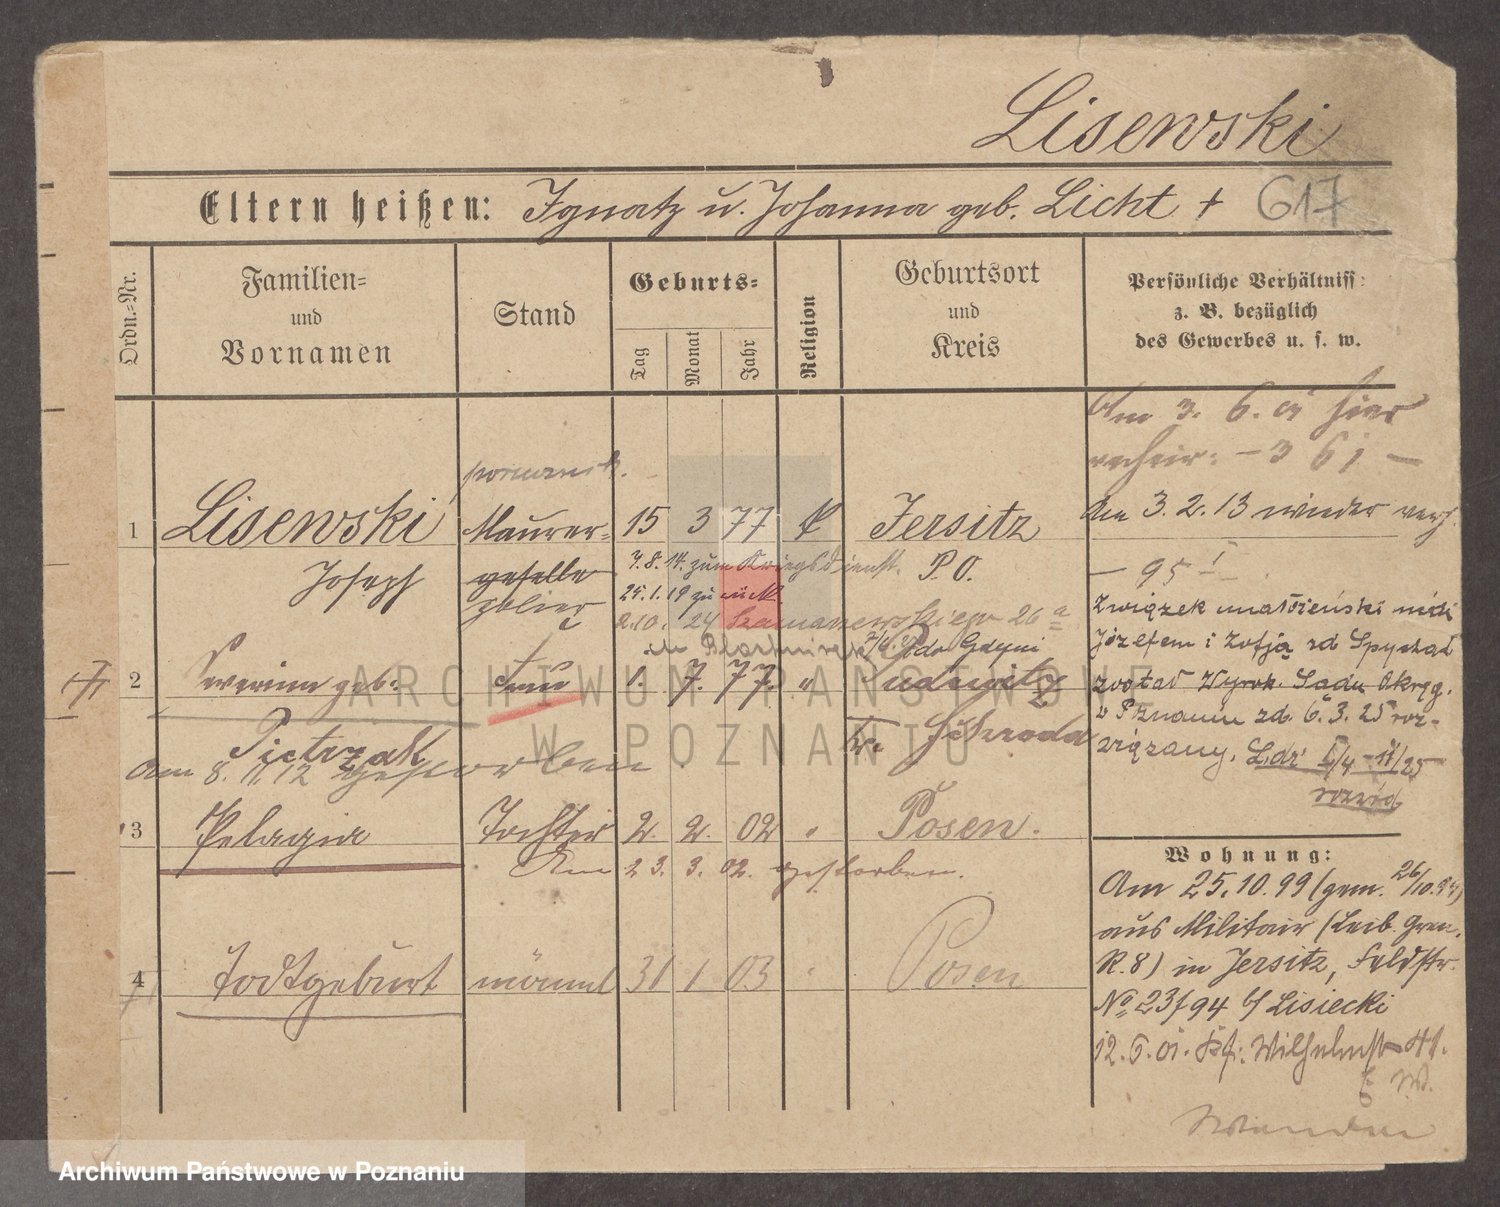 Lisewski
Eltern heißen: Ignatz u. Johanna geb. Licht +
617
Ordn.=Nr.
Familien=
und
Vornamen
Stand
Geburts=
Tag
Monat
Jahr
Religion
Geburtsort
und
Kreis
Persönliche Verhältniss
z. B. bezüglich
des Gewerbes u. s. w.
Am 3. 6. 01 hier
- 3 61 -
Am 3. 2. 13 wieder verh.
- 95 I -
1 Lisewski Maurer= 15 3 77 k Jersitz
Joseph geselle P. O.
polier
7. 8. 14. zum Kriegsdienst.
25. 1. 19 zurück.
2.10. 24 Szamarzewskiego 26 a
do Gdyni
Związek małżeński między
Józefem i Zofją zd Spychał
został Wyrok. Sądu Okręg.
w Poznaniu zd. 6. 3. 25 roz-
wiązany.
rozwód
2 Severine geb: Frau 1. 7. 77. " Sudwitz
Pietrzak Kr. Schroda
Am 8. 11. 12 gestorben
3 Pelagia Tochter 2. 2. 02 " Posen.
Am 23. 3. 02. gestorben.
4 Todtgeburt männl 31 1 03 " Posen
Wohnung:
Am 25.10.99 (gem. 26/10.99)
aus Militair (Leib. Gren.
R. 8) in Jersitz, Feldstr.
No 23/94 b/ Lisiecki
12. 6. 01. Wilhelmst
ARCHIWUM PAŃSTWOWE
W POZNANIU
Archiwum Państwowe w Poznaniu